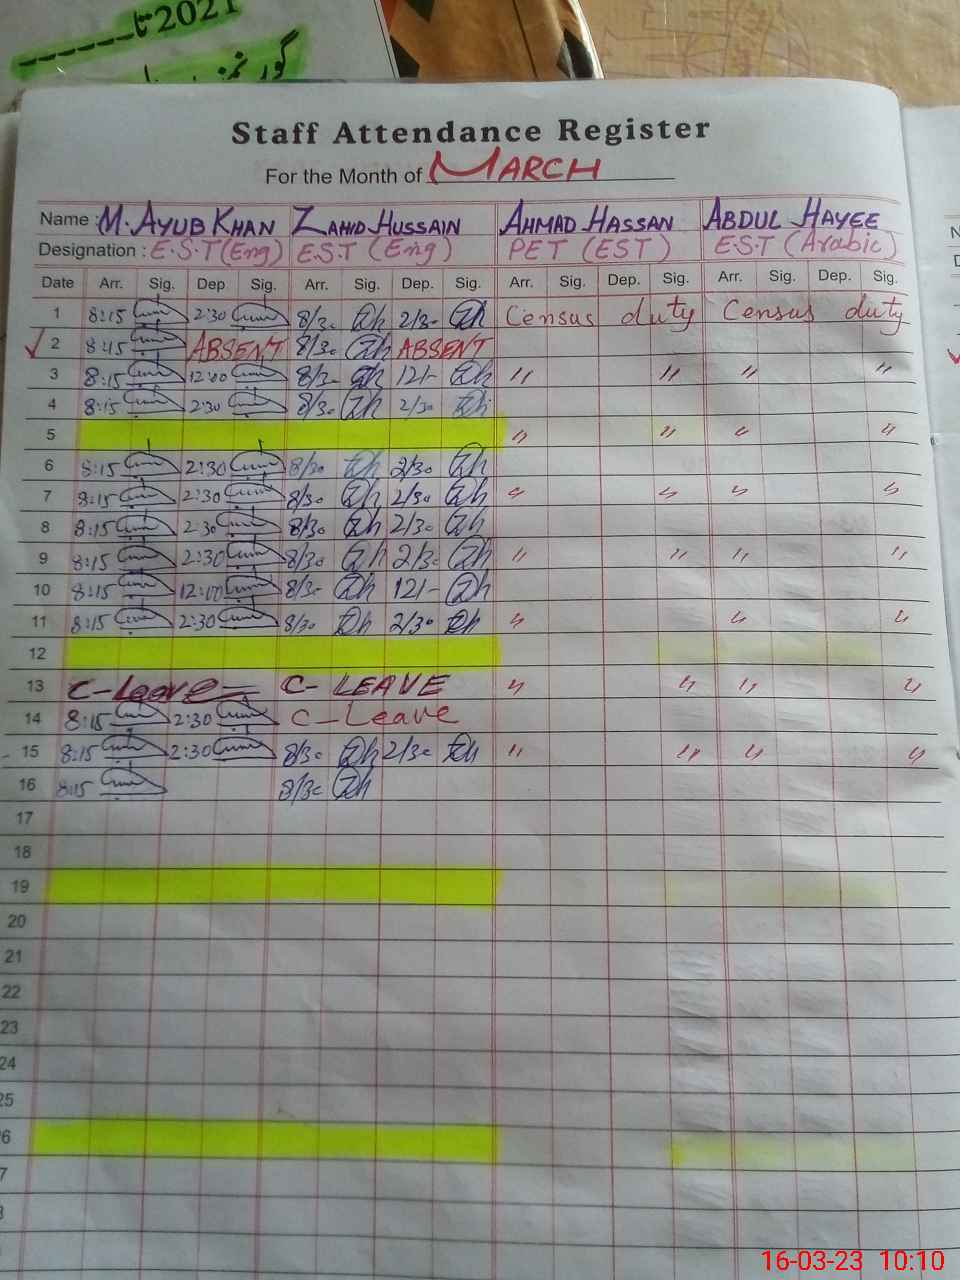 2021 تا
Staff Attendance Register
For the Month of MARCH
Name : M. AYUB KHAN ZAHID HUSSAIN AHMAD HASSAN ABDUL HAYEE
Designation : E.S.T (Eng) EST (Eng) PET (EST) E.S.T (Arabic)
Date Arr. Sig. Dep Sig. Arr. Sig. Dep. Sig. Arr. Sig. Dep. Sig. Arr. Sig. Dep. Sig.
1 8:15 2:30 8/30 2/30 Census duty Census duty
2 8:15 ABSENT 8/30 ABSENT
3 8:15 12:00 8/30 12/- " " " "
4 8:15 2:30 8/30 2/30
5 " " " "
6 8:15 2:30 8/30 2/30
7 8:15 2:30 8/30 2/30 " " " "
8 8:15 2:30 8/30 2/30
9 8:15 2:30 8/30 2/30 " " " "
10 8:15 12:00 8/30 12/-
11 8:15 2:30 8/30 2/30 " " "
12
13 C-Leave C- LEAVE " " " "
14 8:15 2:30 C-Leave
15 8:15 2:30 8/30 2/30 " " " "
16 8:15 8/30
17
18
19
20
21
22
23
24
25
6
7
16-03-23 10:10